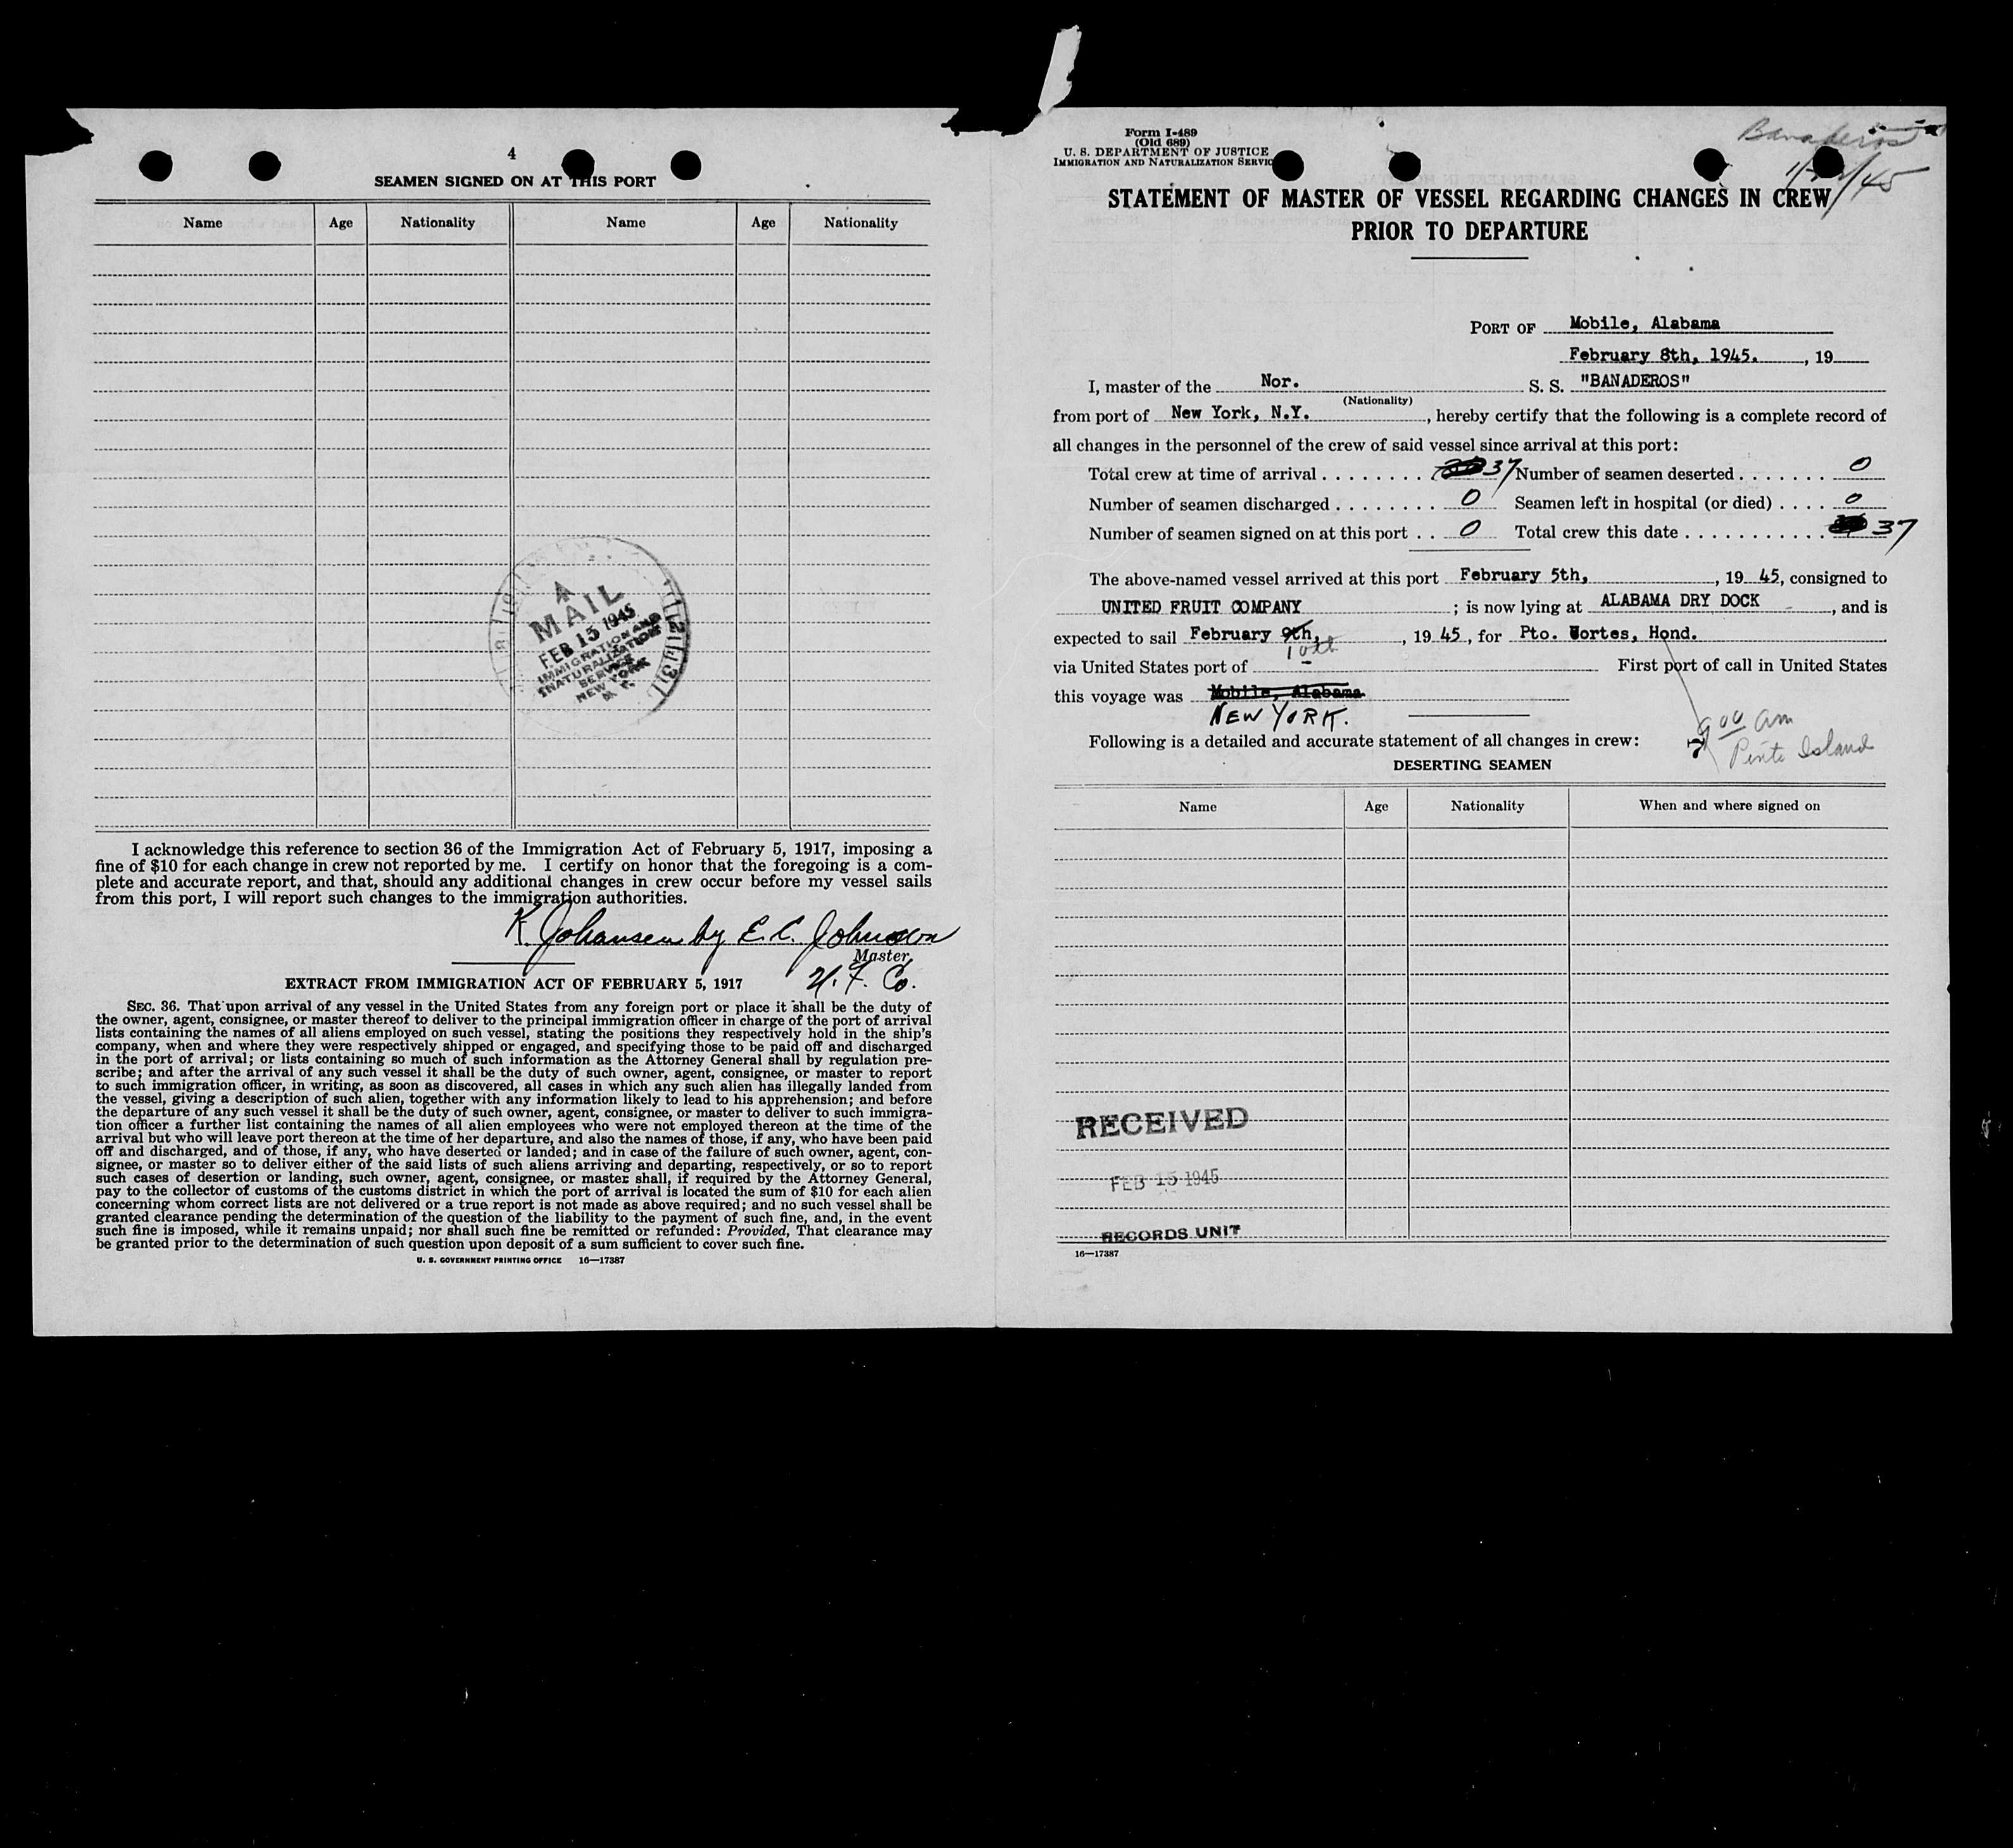 4
SEAMEN SIGNED ON AT THIS PORT
Name Age Nationality Name Age Nationality
MAIL
FEB 15 1945
IMMIGRATION AND
NATURALIZATION
SERVICE
NEW YORK
N. Y.
I acknowledge this reference to section 36 of the Immigration Act of February 5, 1917, imposing a
fine of $10 for each change in crew not reported by me. I certify on honor that the foregoing is a com-
plete and accurate report, and that, should any additional changes in crew occur before my vessel sails
from this port, I will report such changes to the immigration authorities.
K. Johansen by E. C. Johnson
Master
U. F. Co.
EXTRACT FROM IMMIGRATION ACT OF FEBRUARY 5, 1917
SEC. 36. That upon arrival of any vessel in the United States from any foreign port or place it shall be the duty of
the owner, agent, consignee, or master thereof to deliver to the principal immigration officer in charge of the port of arrival
lists containing the names of all aliens employed on such vessel, stating the positions they respectively hold in the ship's
company, when and where they were respectively shipped or engaged, and specifying those to be paid off and discharged
in the port of arrival; or lists containing so much of such information as the Attorney General shall by regulation pre-
scribe; and after the arrival of any such vessel it shall be the duty of such owner, agent, consignee, or master to report
to such immigration officer, in writing, as soon as discovered, all cases in which any such alien has illegally landed from
the vessel, giving a description of such alien, together with any information likely to lead to his apprehension; and before
the departure of any such vessel it shall be the duty of such owner, agent, consignee, or master to deliver to such immigra-
tion officer a further list containing the names of all alien employees who were not employed thereon at the time of the
arrival but who will leave port thereon at the time of her departure, and also the names of those, if any, who have been paid
off and discharged, and of those, if any, who have deserted or landed; and in case of the failure of such owner, agent, con-
signee, or master so to deliver either of the said lists of such aliens arriving and departing, respectively, or so to report
such cases of desertion or landing, such owner, agent, consignee, or master shall, if required by the Attorney General,
pay to the collector of customs of the customs district in which the port of arrival is located the sum of $10 for each alien
concerning whom correct lists are not delivered or a true report is not made as above required; and no such vessel shall be
granted clearance pending the determination of the question of the liability to the payment of such fine, and, in the event
such fine is imposed, while it remains unpaid; nor shall such fine be remitted or refunded: Provided, That clearance may
be granted prior to the determination of such question upon deposit of a sum sufficient to cover such fine.
U. S. GOVERNMENT PRINTING OFFICE 16—17387
Form I-489
(Old 689)
U. S. DEPARTMENT OF JUSTICE
IMMIGRATION AND NATURALIZATION SERVIC
Banaderos
STATEMENT OF MASTER OF VESSEL REGARDING CHANGES IN CREW
PRIOR TO DEPARTURE
PORT OF Mobile, Alabama
February 8th, 1945. , 19
I, master of the Nor. S. S. "BANADEROS"
(Nationality)
from port of New York, N.Y. , hereby certify that the following is a complete record of
all changes in the personnel of the crew of said vessel since arrival at this port:
Total crew at time of arrival . . . . . . . . 37 Number of seamen deserted . . . . . . . 0
Number of seamen discharged . . . . . . . . 0 Seamen left in hospital (or died) . . . . 0
Number of seamen signed on at this port . . 0 Total crew this date . . . . . . . . . . . 37
The above-named vessel arrived at this port February 5th, , 19 45, consigned to
UNITED FRUIT COMPANY ; is now lying at ALABAMA DRY DOCK , and is
expected to sail February 9th, , 19 45 , for Pto. Cortes, Hond.
10th
via United States port of First port of call in United States
this voyage was Mobile, Alabama
NEW YORK.
9 00 am
Pinto Island
Following is a detailed and accurate statement of all changes in crew:
DESERTING SEAMEN
Name Age Nationality When and where signed on
RECEIVED
FEB 15 1945
RECORDS UNIT
16—17387